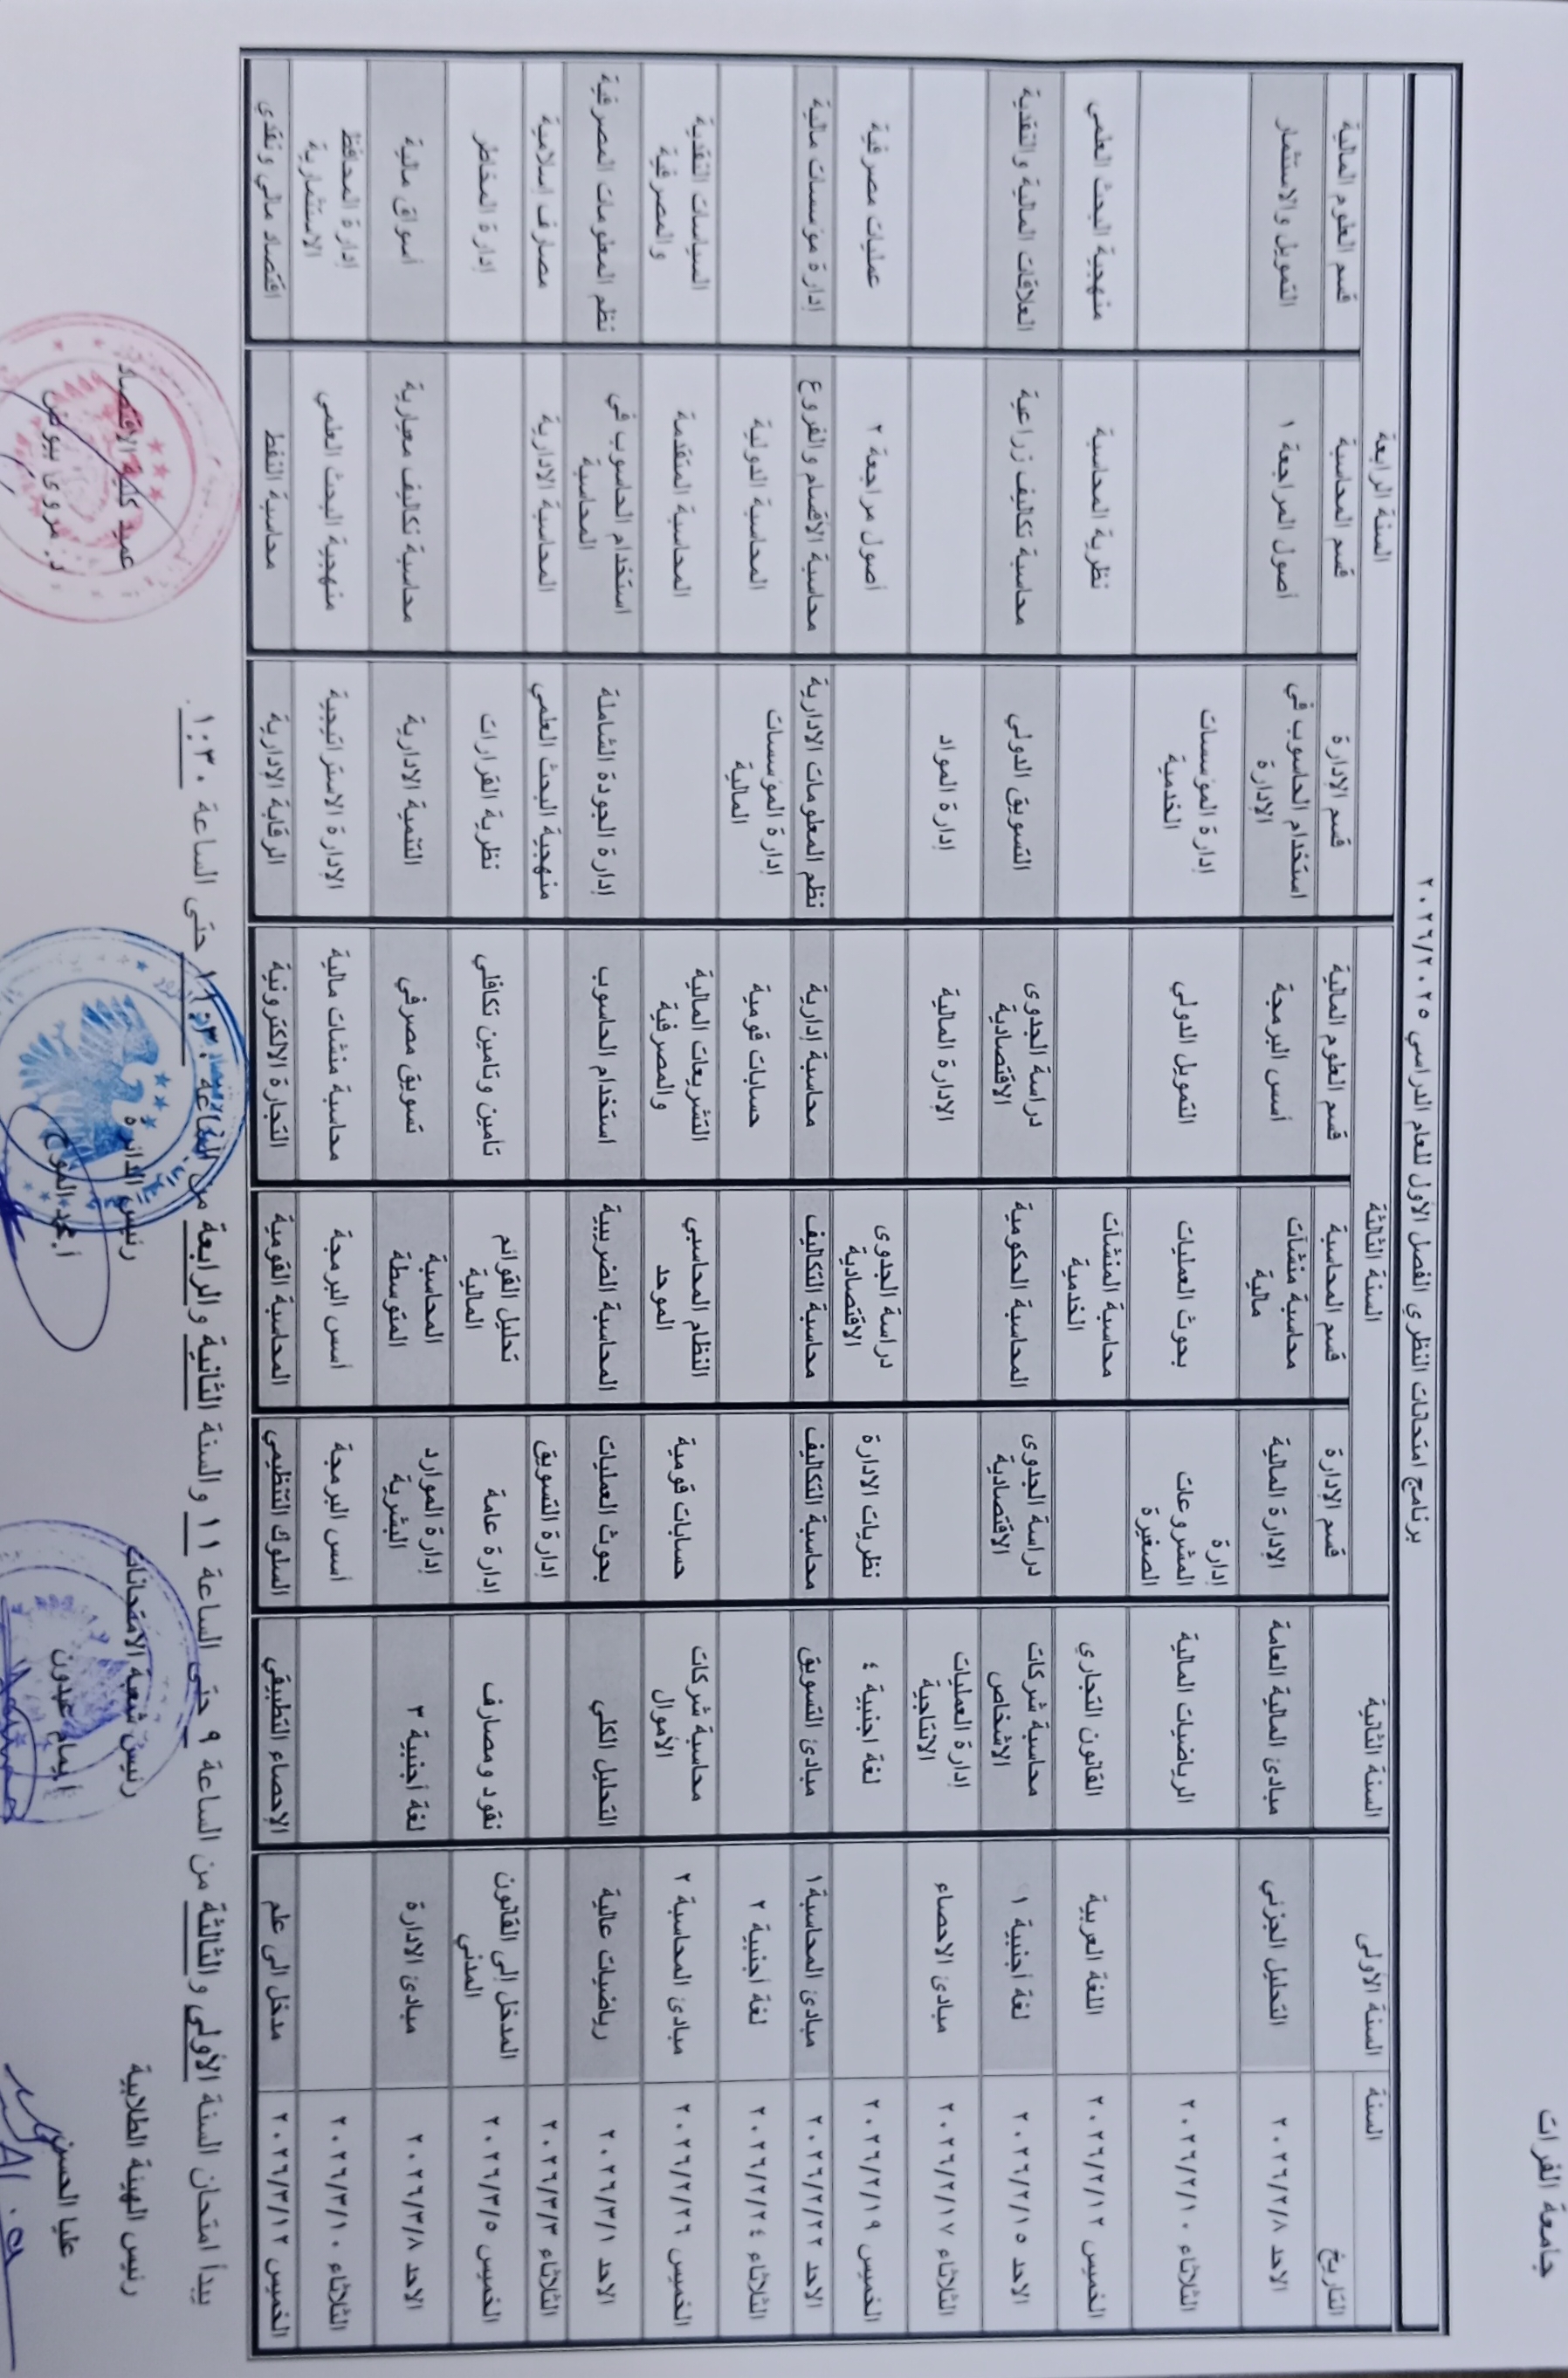 جامعة الفرات
برنامج امتحانات النظري الفصل الأول للعام الدراسي ٢٠٢٦/٢٠٢٥
السنة السنة الأولى السنة الثانية السنة الثالثة السنة الرابعة
التاريخ قسم الإدارة قسم المحاسبة قسم العلوم المالية قسم الإدارة قسم المحاسبة قسم العلوم المالية
الاحد ٢٠٢٦/٢/٨ التحليل الجزئي مبادئ المالية العامة الإدارة المالية محاسبة منشآت مالية أسس البرمجة استخدام الحاسوب في الإدارة أصول المراجعة ١ التمويل والاستثمار
الثلاثاء ٢٠٢٦/٢/١٠ الرياضيات المالية إدارة المشروعات الصغيرة بحوث العمليات التمويل الدولي إدارة المؤسسات الخدمية
الخميس ٢٠٢٦/٢/١٢ اللغة العربية القانون التجاري محاسبة المنشآت الخدمية نظرية المحاسبة منهجية البحث العلمي
الاحد ٢٠٢٦/٢/١٥ لغة أجنبية ١ محاسبة شركات الاشخاص دراسة الجدوى الاقتصادية المحاسبة الحكومية دراسة الجدوى الاقتصادية التسويق الدولي محاسبة تكاليف زراعية العلاقات المالية والنقدية
الثلاثاء ٢٠٢٦/٢/١٧ مبادئ الاحصاء إدارة العمليات الانتاجية الإدارة المالية إدارة المواد
الخميس ٢٠٢٦/٢/١٩ لغة اجنبية ٤ نظريات الادارة دراسة الجدوى الاقتصادية أصول مراجعة ٢ عمليات مصرفية
الاحد ٢٠٢٦/٢/٢٢ مبادئ المحاسبة١ مبادئ التسويق محاسبة التكاليف محاسبة التكاليف محاسبة إدارية نظم المعلومات الادارية محاسبة الأقسام والفروع إدارة مؤسسات مالية
الثلاثاء ٢٠٢٦/٢/٢٤ لغة أجنبية ٢ حسابات قومية إدارة المؤسسات المالية المحاسبة الدولية
الخميس ٢٠٢٦/٢/٢٦ مبادئ المحاسبة ٢ محاسبة شركات الأموال حسابات قومية النظام المحاسبي الموحد التشريعات المالية والمصرفية المحاسبة المتقدمة السياسات النقدية والمصرفية
الاحد ٢٠٢٦/٣/١ رياضيات عالية التحليل الكلي بحوث العمليات المحاسبة الضريبية استخدام الحاسوب إدارة الجودة الشاملة استخدام الحاسوب في المحاسبة نظم المعلومات المصرفية
الثلاثاء ٢٠٢٦/٣/٣ إدارة التسويق منهجية البحث العلمي المحاسبة الادارية مصارف إسلامية
الخميس ٢٠٢٦/٣/٥ المدخل إلى القانون المدني نقود ومصارف إدارة عامة تحليل القوائم المالية تأمين وتامين تكافلي نظرية القرارات إدارة المخاطر
الاحد ٢٠٢٦/٣/٨ مبادئ الادارة لغة أجنبية ٣ إدارة الموارد البشرية المحاسبة المتوسطة تسويق مصرفي التنمية الادارية محاسبة تكاليف معيارية أسواق مالية
الثلاثاء ٢٠٢٦/٣/١٠ أسس البرمجة أسس البرمجة محاسبة منشات مالية الإدارة الاستراتيجية منهجية البحث العلمي إدارة المحافظ الاستثمارية
الخميس ٢٠٢٦/٣/١٢ مدخل الى علم الإحصاء التطبيقي السلوك التنظيمي المحاسبة القومية التجارة الالكترونية الرقابة الإدارية محاسبة النفط اقتصاد مالي ونقدي
يبدأ امتحان السنة الأولى والثالثة من الساعة ٩ حتى الساعة ١١ والسنة الثانية والرابعة من الساعة ١١:٣٠ حتى الساعة ١:٣٠.
رئيس الهيئة الطلابية رئيس شعبة الامتحانات رئيس الدائرة عميد كلية الاقتصاد
عليا الحسن